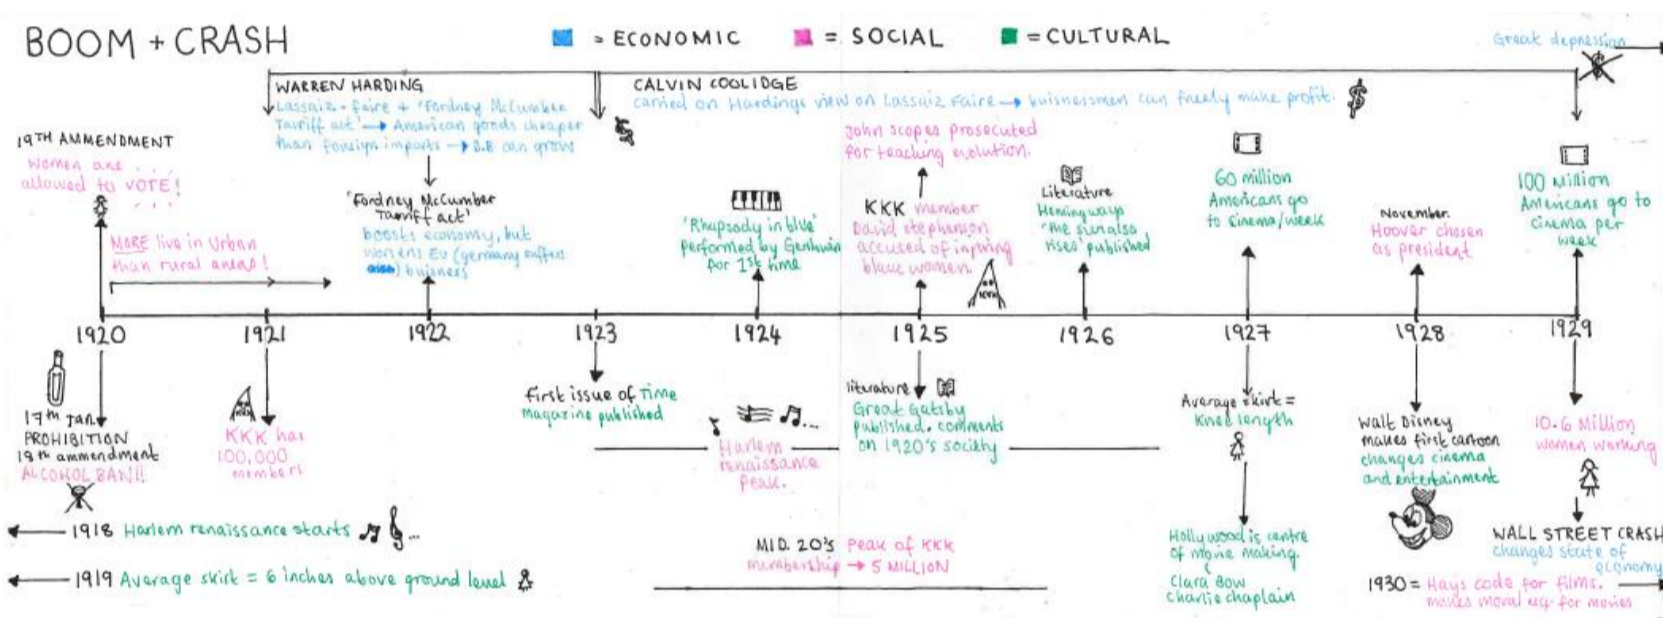 BOOM + CRASH
= ECONOMIC
= SOCIAL
= CULTURAL
Great depression
WARREN HARDING
Lassaiz-faire + 'Fordney McCumber
Tarriff act' → American goods cheaper
than foreign imports → B.B can grow
CALVIN COOLIDGE
carried on Hardings view on Lassaiz Faire → buisnessmen can freely make profit.
19TH AMMENDMENT
Women are
allowed to VOTE!
MORE live in Urban
than rural areas!
'Fordney McCumber
Tarriff act'
boosts economy, but
worsens EU (germany suffers
) buisness
'Rhapsody in blue'
performed by Gershwin
for 1st time
John Scopes prosecuted
for teaching evolution.
KKK member
David stephenson
accused of
women.
KKK
Literature
Hemingways
'The sun also
rises' published
60 million
Americans go
to cinema/week
November.
Hoover chosen
as president
100 Million
Americans go to
cinema per
week
1920
1921
1922
1923
1924
1925
1926
1927
1928
1929
17th Jan.
PROHIBITION
18th ammendment
ALCOHOL BAN!!
KKK
KKK has
100,000
members
First issue of Time
Magazine published
Harlem
renaissance
peak.
literature
Great Gatsby
published. comments
on 1920's society
Average skirt =
Knee length
Hollywood is centre
of movie making.
Clara Bow
Charlie chaplain
Walt Disney
makes first cartoon
changes cinema
and entertainment
10.6 Million
women working
WALL STREET CRASH
changes state of
economy
← 1918 Harlem renaissance starts
← 1919 Average skirt = 6 inches above ground level
MID. 20's Peak of KKK
membership → 5 MILLION
1930 = Hays code for films.
makes moral for movies